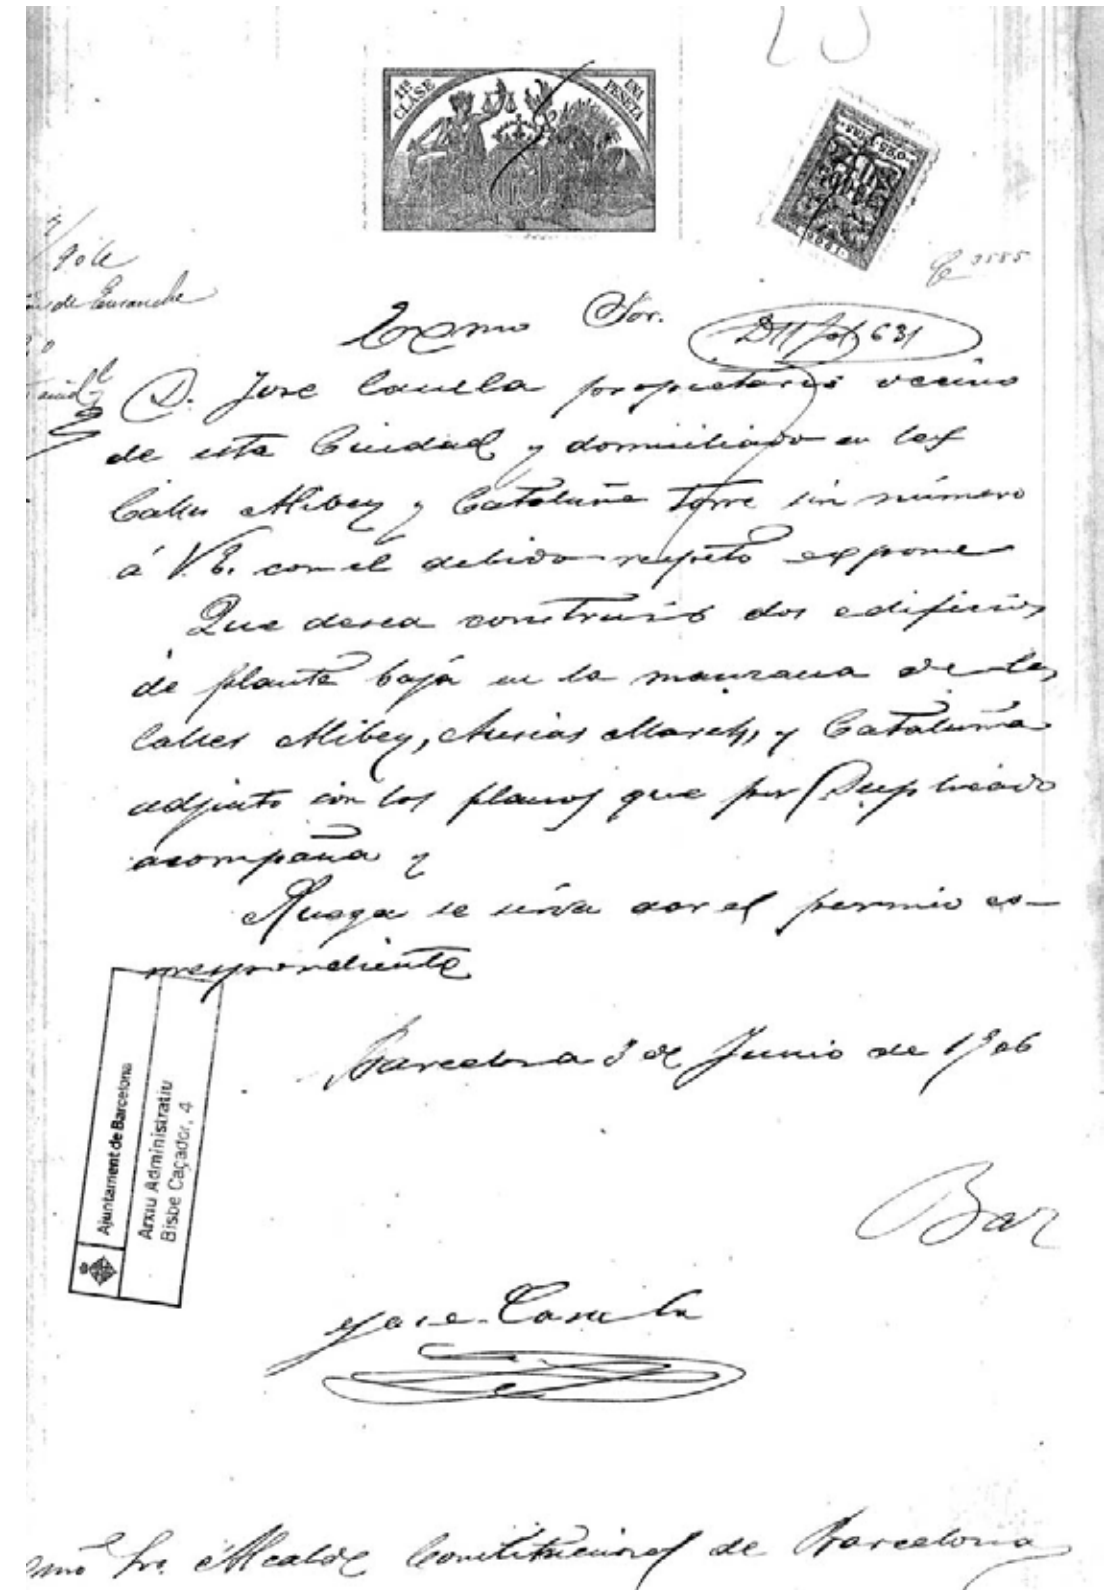 11ª CLASE
UNA PESETA
de Ensanche
3585
Exmo Sor.
D11 fol 631
D. Jose Canela propietario vecino
de esta Ciudad y domiciliado en las
Calles Alibey y Cataluña Torre sin número
á V.E. con el debido respeto expone
Que desea construir dos edificios
de planta bajá en la manzana de las
Calles Alibey, Ausias March, y Cataluña
adjunto con los planos que por Duplicado
acompaña y
Ruega se sirva dar el permiso co-
rrespondiente
Barcelona 3 de Junio de 1906
Ajuntament de Barcelona
Arxiu Administratiu
Bisbe Caçador, 4
Bar
Jose Canela
Sr. Alcalde Constitucional de Barcelona